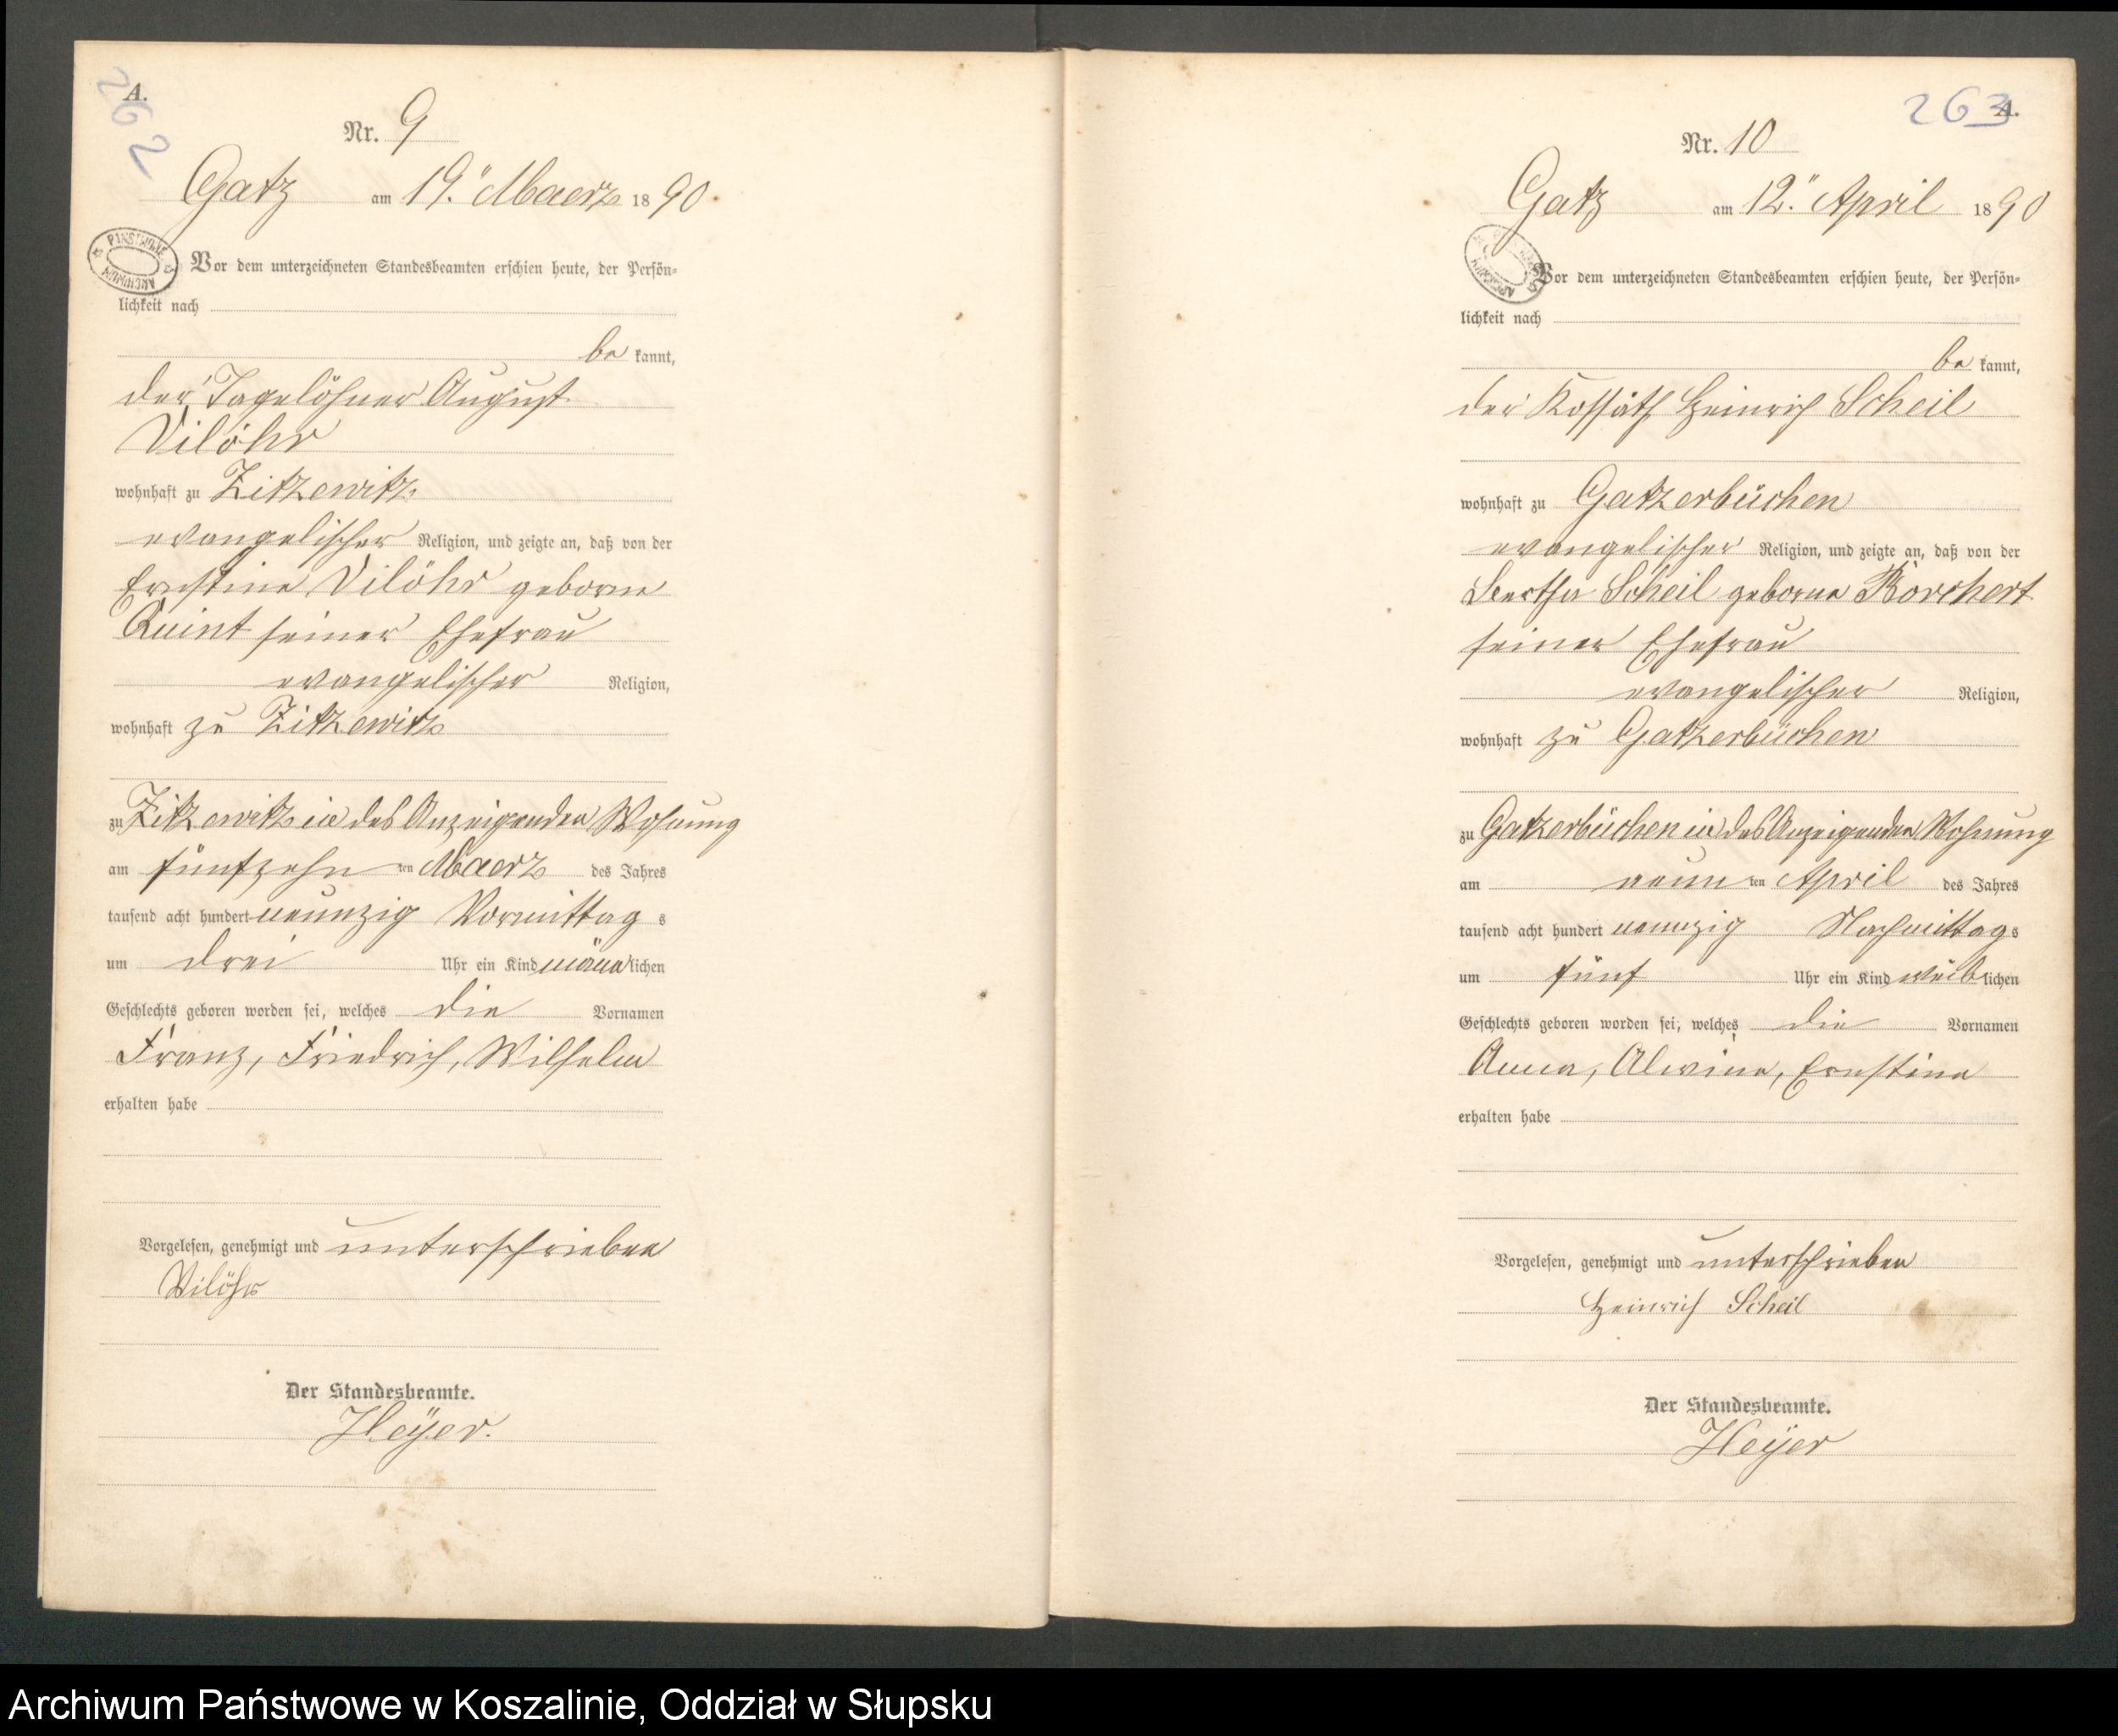 262
A.
Nr. 9
Gatz am 19. Maerz 1890.
PAŃSTWOWE ARCHIWUM
Vor dem unterzeichneten Standesbeamten erschien heute, der Persön-
lichkeit nach
be kannt,
der Tagelöhner August
Vilöhr
wohnhaft zu Zitzewitz
evangelischer Religion, und zeigte an, daß von der
Ernstine Vilöhr geborne
Quint seiner Ehefrau
evangelischer Religion,
wohnhaft zu Zitzewitz
zu Zitzewitz in des Anzeigenden Wohnung
am fünfzehn ten Maerz des Jahres
tausend acht hundert neunzig Vormittag s
um drei Uhr ein Kind männlichen
Geschlechts geboren worden sei, welches die Vornamen
Franz, Friedrich, Wilhelm
erhalten habe
Vorgelesen, genehmigt und unterschrieben
Vilöhr
Der Standesbeamte.
Heÿer.
263
A.
Nr. 10
Gatz am 12. April 1890
Vor dem unterzeichneten Standesbeamten erschien heute, der Persön-
lichkeit nach
be kannt,
der Kossäth Heinrich Scheil
wohnhaft zu Gatzerbüchen
evangelischer Religion, und zeigte an, daß von der
Bertha Scheil geborne Borchert
seiner Ehefrau
evangelischer Religion,
wohnhaft zu Gatzerbüchen
zu Gatzerbüchen in des Anzeigenden Wohnung
am neun ten April des Jahres
tausend acht hundert neunzig Nachmittags
um fünf Uhr ein Kind weiblichen
Geschlechts geboren worden sei, welches die Vornamen
Anna, Alwine, Ernstine
erhalten habe
Vorgelesen, genehmigt und unterschrieben
Heinrich Scheil
Der Standesbeamte.
Heÿer
Archiwum Państwowe w Koszalinie, Oddział w Słupsku